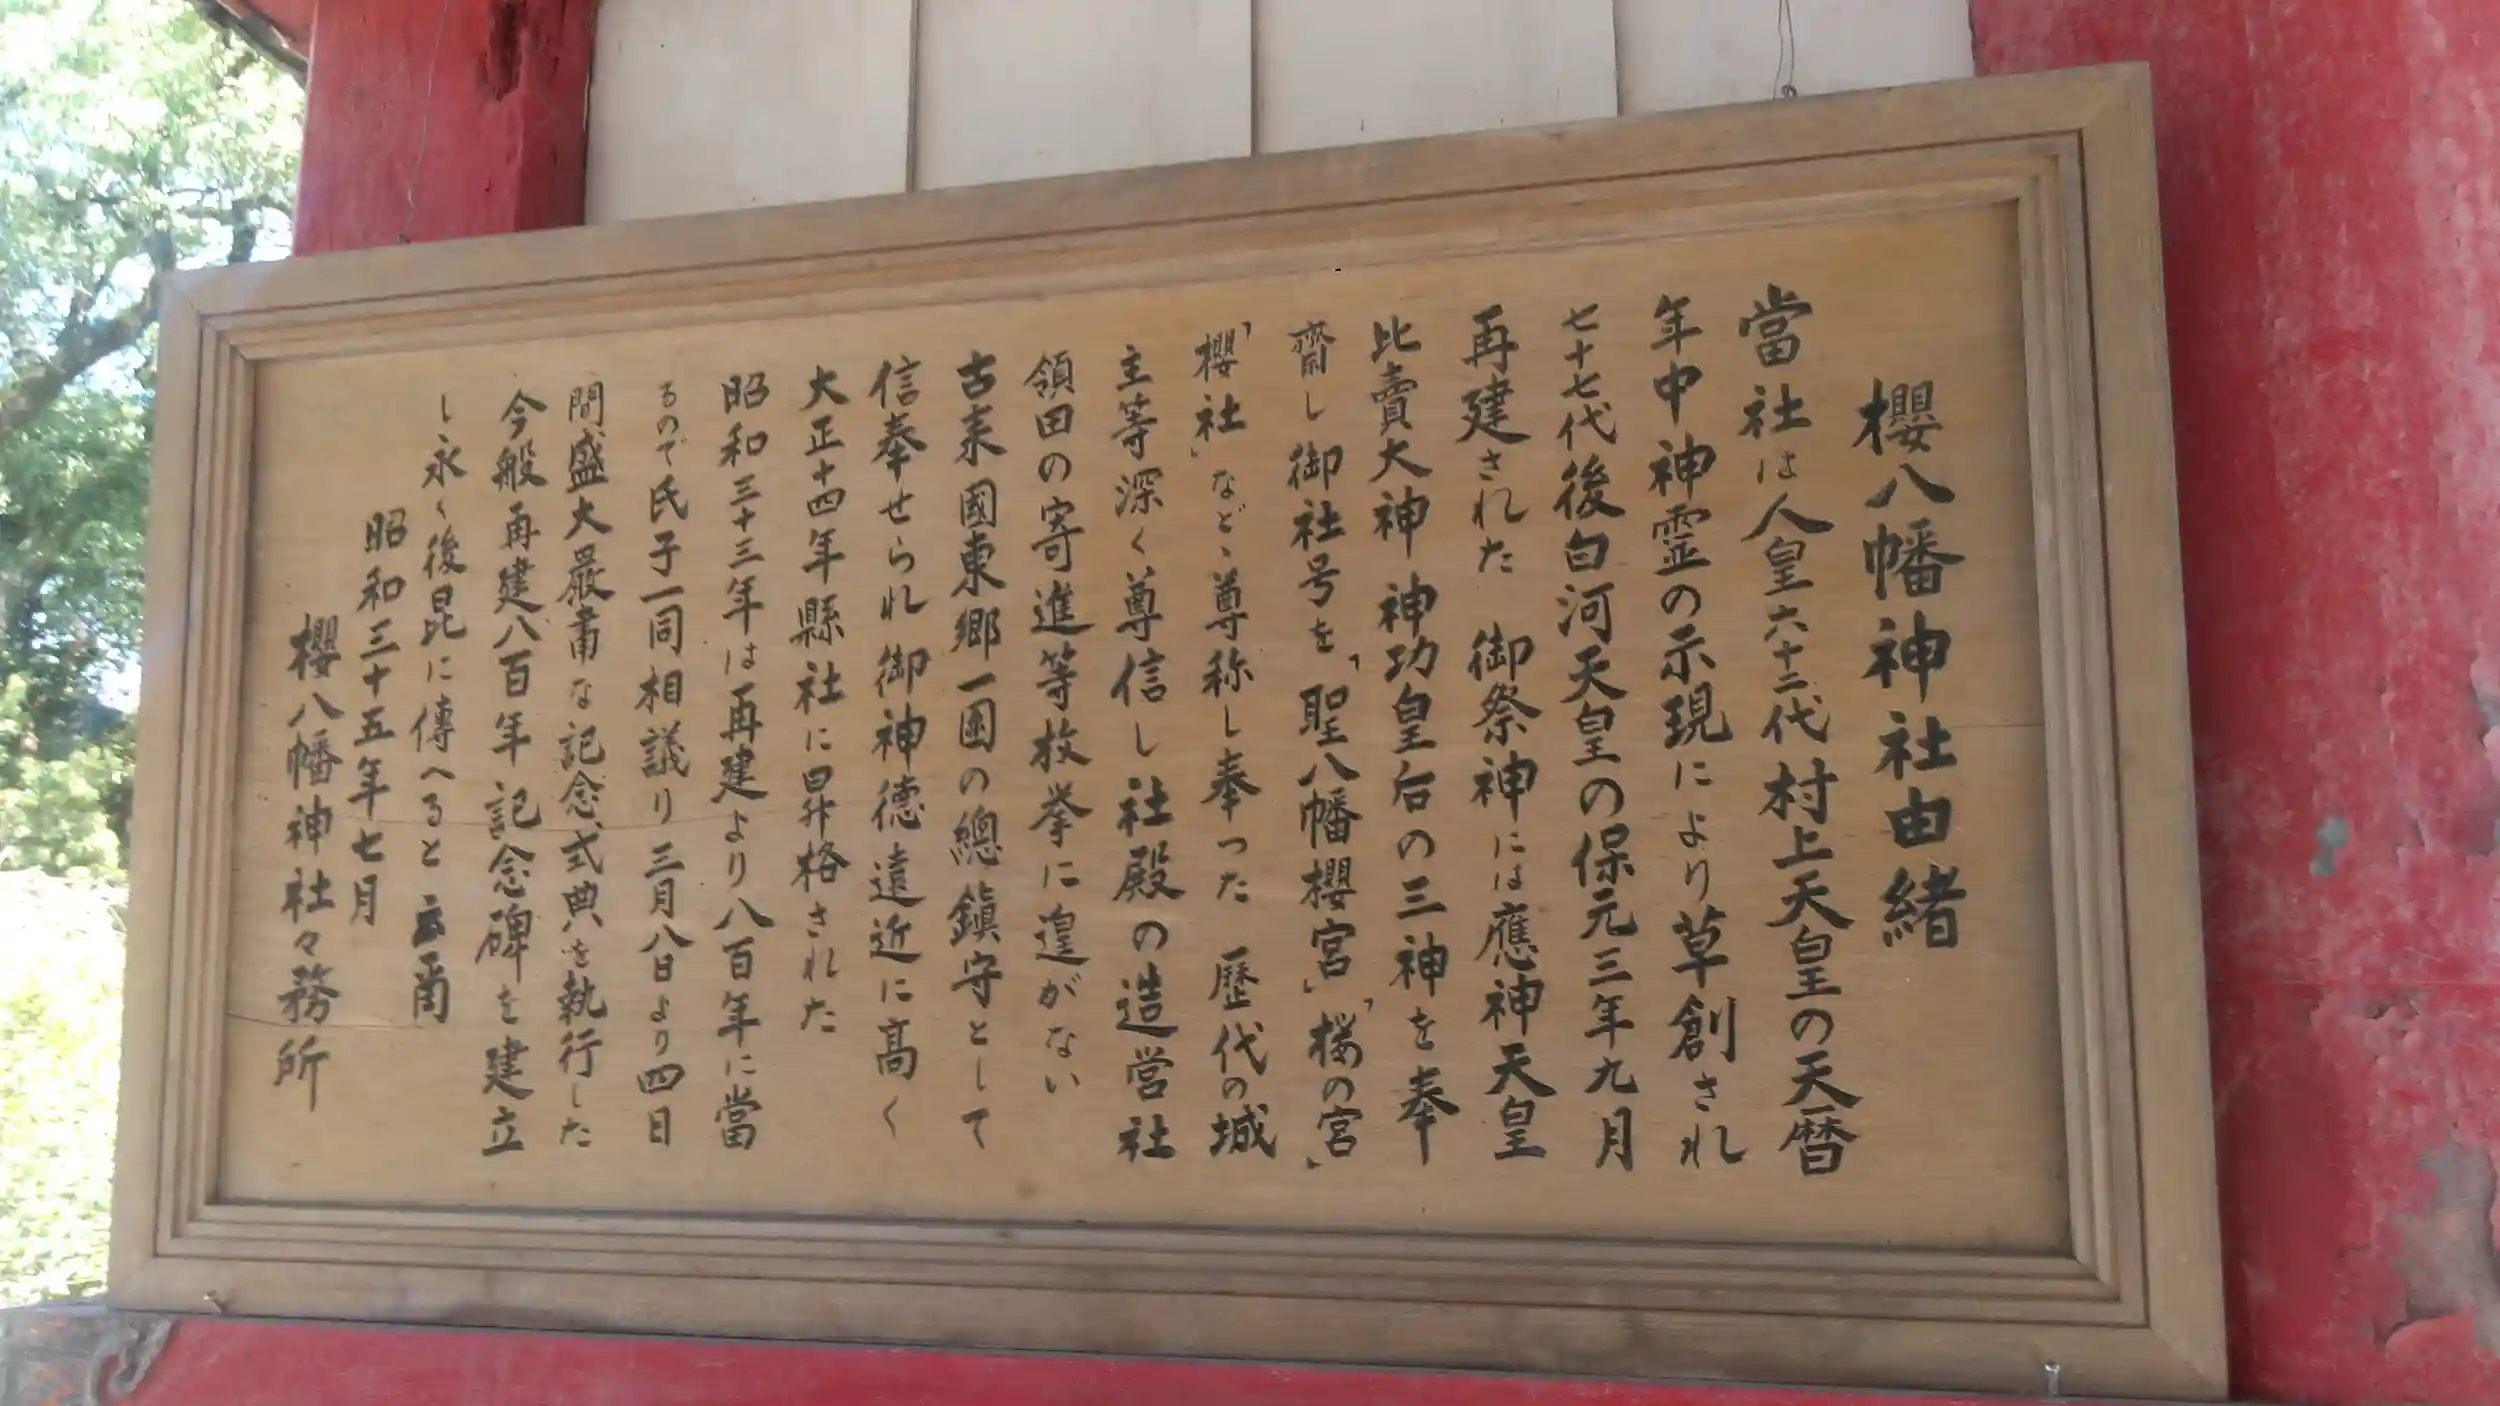 櫻八幡神社由緒
當社は人皇六十二代村上天皇の天暦
年中神霊の示現により草創され
七十七代後白河天皇の保元三年九月
再建された 御祭神には應神天皇
比賣大神 神功皇后の三神を奉
齋し御社号を「聖八幡櫻宮」「桜の宮」
「櫻社」などゝ尊称し奉った 歴代の城
主等深く尊信し社殿の造営社
領田の寄進等枚挙に遑がない
古来國東郷一圓の總鎮守として
信奉せられ御神徳遠近に高く
大正十四年縣社に昇格された
昭和三十三年は再建より八百年に當
るので氏子一同相議り三月八日より四日
間盛大厳粛な記念式典を執行した
今般再建八百年 記念碑を建立
し永く後昆に傳へると云爾
昭和三十五年七月
櫻八幡神社々務所